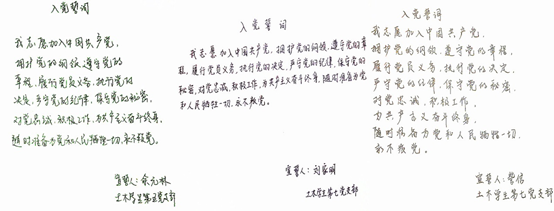 入党誓词
我志愿加入中国共产党,
拥护党的纲领,遵守党的
章程,履行党员义务,执行党的
决定,严守党的纪律,保守党的秘密,
对党忠诚,积极工作,为共产主义奋斗终身,
随时准备为党和人民牺牲一切,永不叛党。
宣誓人:余元林
土木学生第五党支部
入党誓词
我志愿加入中国共产党,拥护党的纲领,遵守党的章
程,履行党员义务,执行党的决定,严守党的纪律,保守党的
秘密,对党忠诚,积极工作,为共产主义奋斗终身,随时准备为党
和人民牺牲一切,永不叛党。
宣誓人:刘家明
土木学生第七党支部
入党誓词
我志愿加入中国共产党,
拥护党的纲领,遵守党的章程,
履行党员义务,执行党的决定,
严守党的纪律,保守党的秘密,
对党忠诚,积极工作,
为共产主义奋斗终身,
随时准备为党和人民牺牲一切,
永不叛党。
宣誓人:
土木学生第七党支部